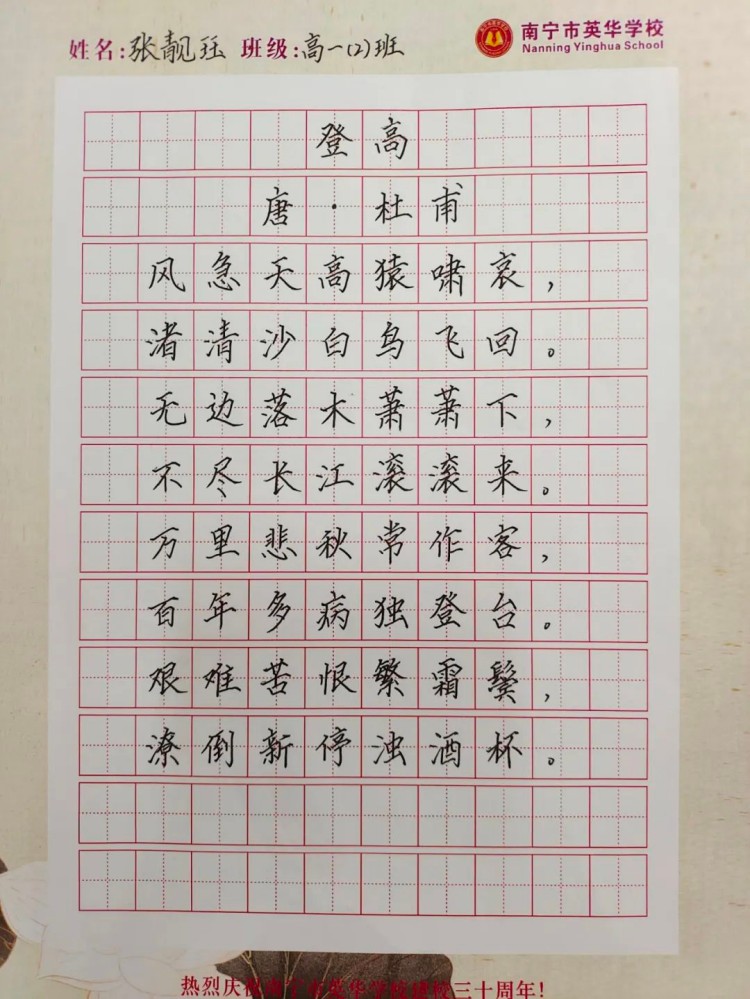 姓名:张靓珏 班级:高一(2)班
南宁市英华学校
Nanning Yinghua School
登高
唐·杜甫
风急天高猿啸哀，
渚清沙白鸟飞回。
无边落木萧萧下，
不尽长江滚滚来。
万里悲秋常作客，
百年多病独登台。
艰难苦恨繁霜鬓，
潦倒新停浊酒杯。
热烈庆祝南宁市英华学校建校三十周年!